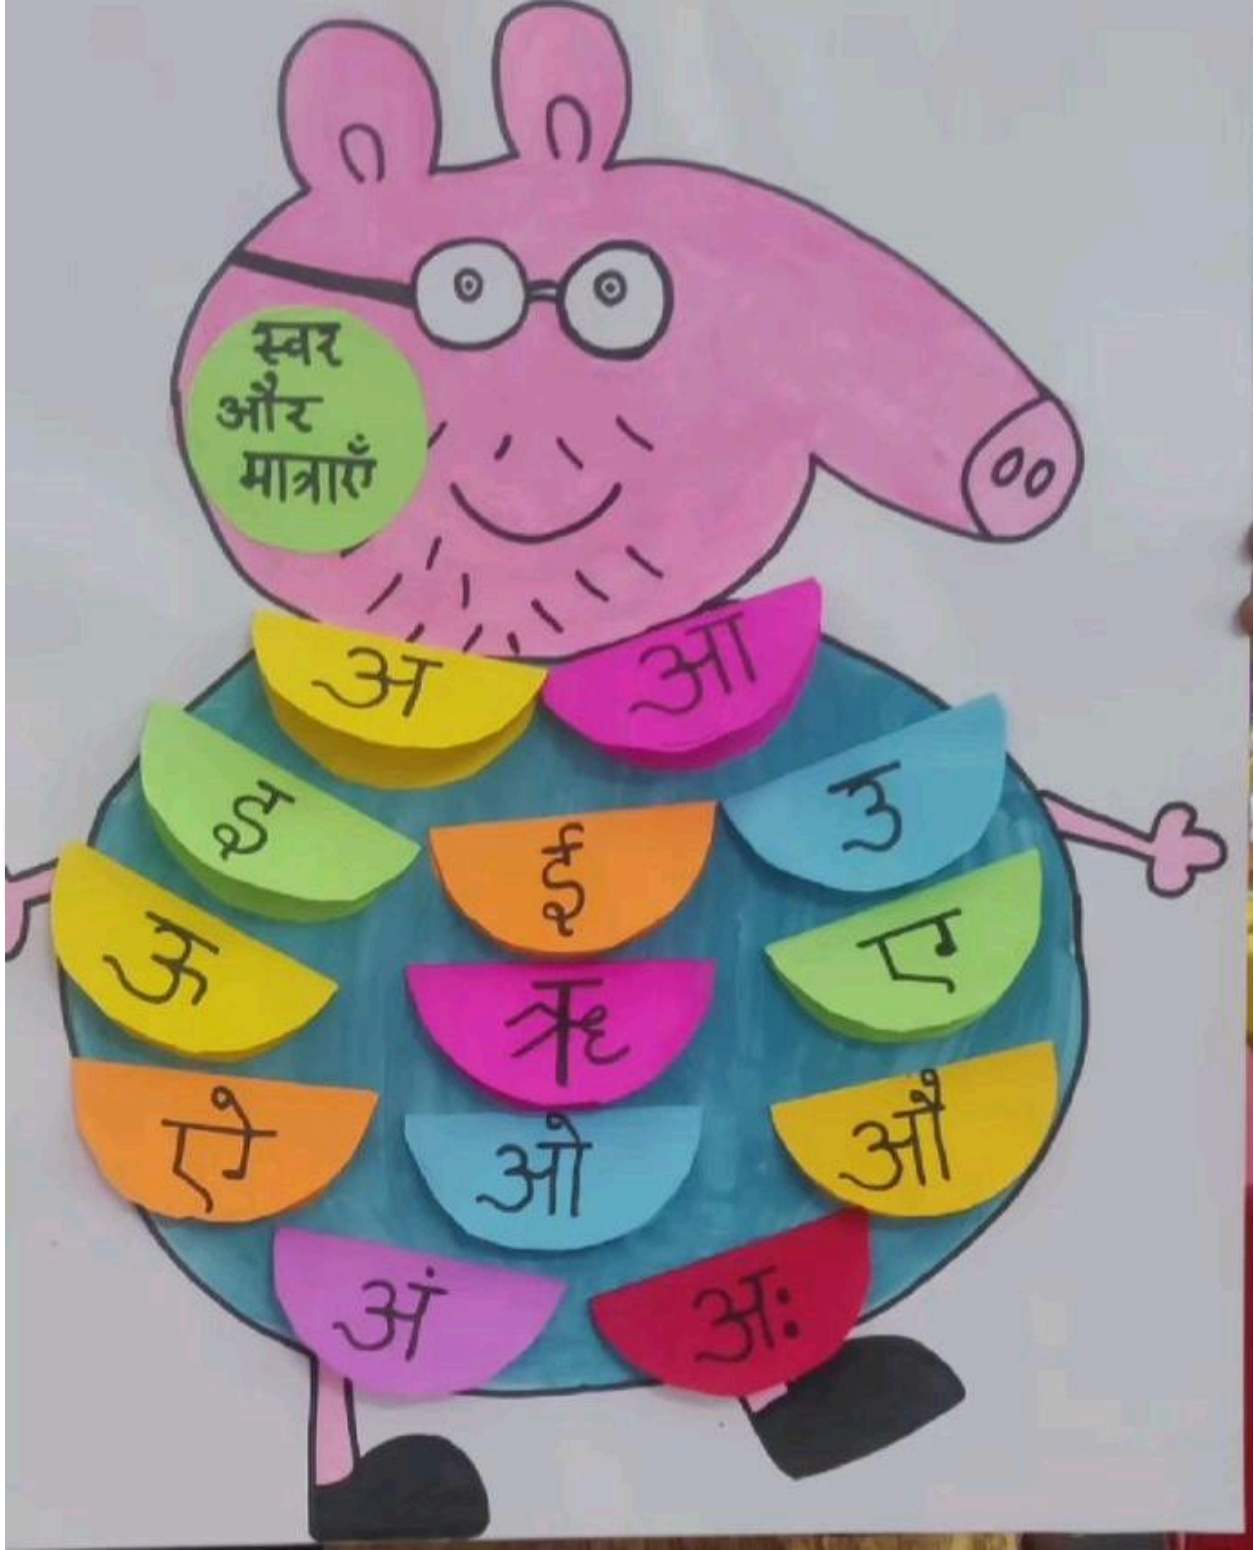 स्वर
और
मात्राएँ
अ आ
इ ई उ
ऊ ऋ ए
ऐ ओ औ
अं अः